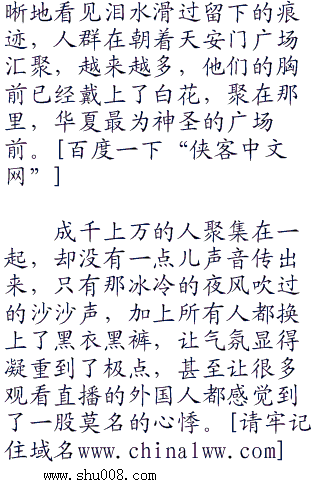 晰地看见泪水滑过留下的痕
迹，人群在朝着天安门广场
汇聚，越来越多，他们的胸
前已经戴上了白花，聚在那
里，华夏最为神圣的广场
前。[百度一下“侠客中文
网”]
成千上万的人聚集在一
起，却没有一点儿声音传出
来，只有那冰冷的夜风吹过
的沙沙声，加上所有人都换
上了黑衣黑裤，让气氛显得
凝重到了极点，甚至让很多
观看直播的外国人都感觉到
了一股莫名的心悸。[请牢记
住域名www.china1ww.com]
www.shu008.com